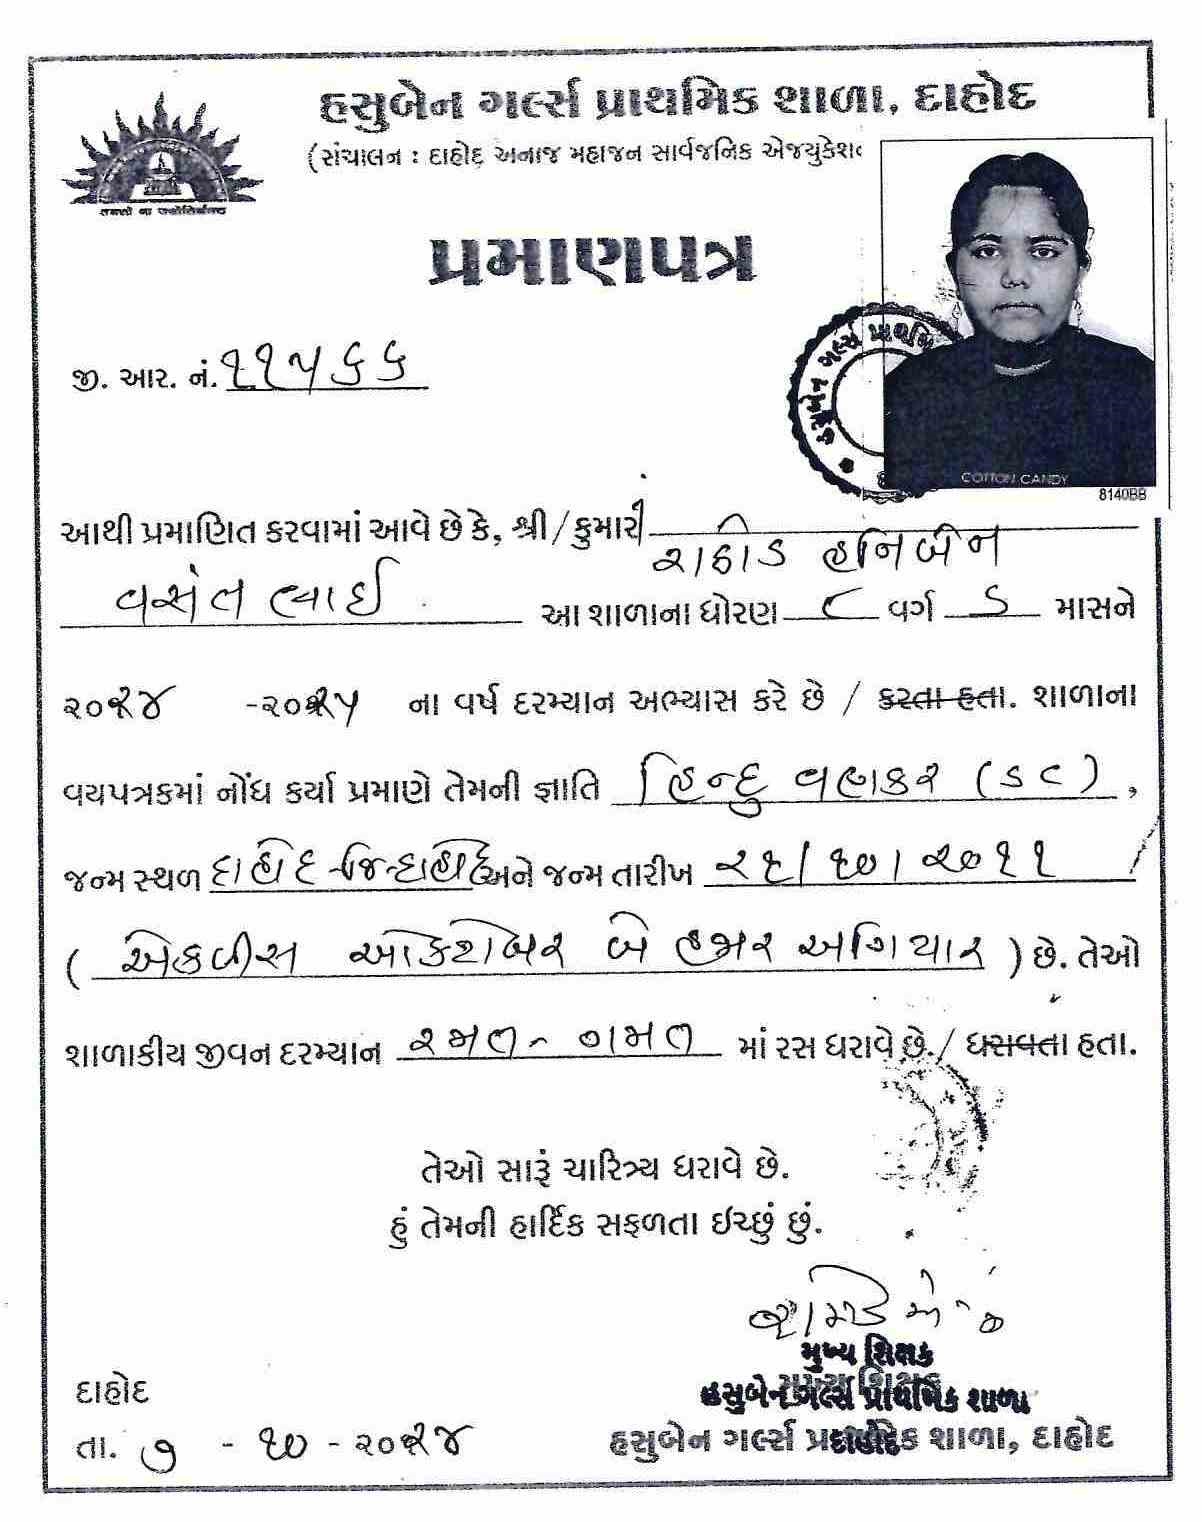 હસુબેન ગર્લ્સ પ્રાથમિક શાળા, દાહોદ
(સંચાલન : દાહોદ અનાજ મહાજન સાર્વજનિક એજયુકેશન
તમસો મા જ્યોતિર્ગમય
પ્રમાણપત્ર
જી. આર. નં. ૧૧૫૬૬
હસુબેન ગર્લ્સ પ્રાથમિ
COTTON CANDY
8140BB
આથી પ્રમાણિત કરવામાં આવે છે કે, શ્રી / કુમારી રાઠોડ હનિબેન
વસંતભાઈ આ શાળાના ધોરણ ૮ વર્ગ ડ માસને
૨૦૨૪ -૨૦૨૫ ના વર્ષ દરમ્યાન અભ્યાસ કરે છે / કરતા હતા. શાળાના
વયપત્રકમાં નોંધ કર્યા પ્રમાણે તેમની જ્ઞાતિ હિન્દુ વણકર (SC) ,
જન્મ સ્થળ દાહોદ જિ-દાહોદ અને જન્મ તારીખ ૨૧/૧૦/૨૦૧૧
( એકવીસ ઓકટોબર બે હજાર અગિયાર ) છે. તેઓ
શાળાકીય જીવન દરમ્યાન રમત-ગમત માં રસ ધરાવે છે. / ધરાવતા હતા.
તેઓ સારૂં ચારિત્ર્ય ધરાવે છે.
હું તેમની હાર્દિક સફળતા ઇચ્છું છું.
મુખ્ય શિક્ષક
હસુબેન ગર્લ્સ પ્રાથમિક શાળા
દાહોદ
હસુબેન ગર્લ્સ પ્રાથમિક શાળા, દાહોદ
તા. ૭ - ૧૦ - ૨૦૨૪